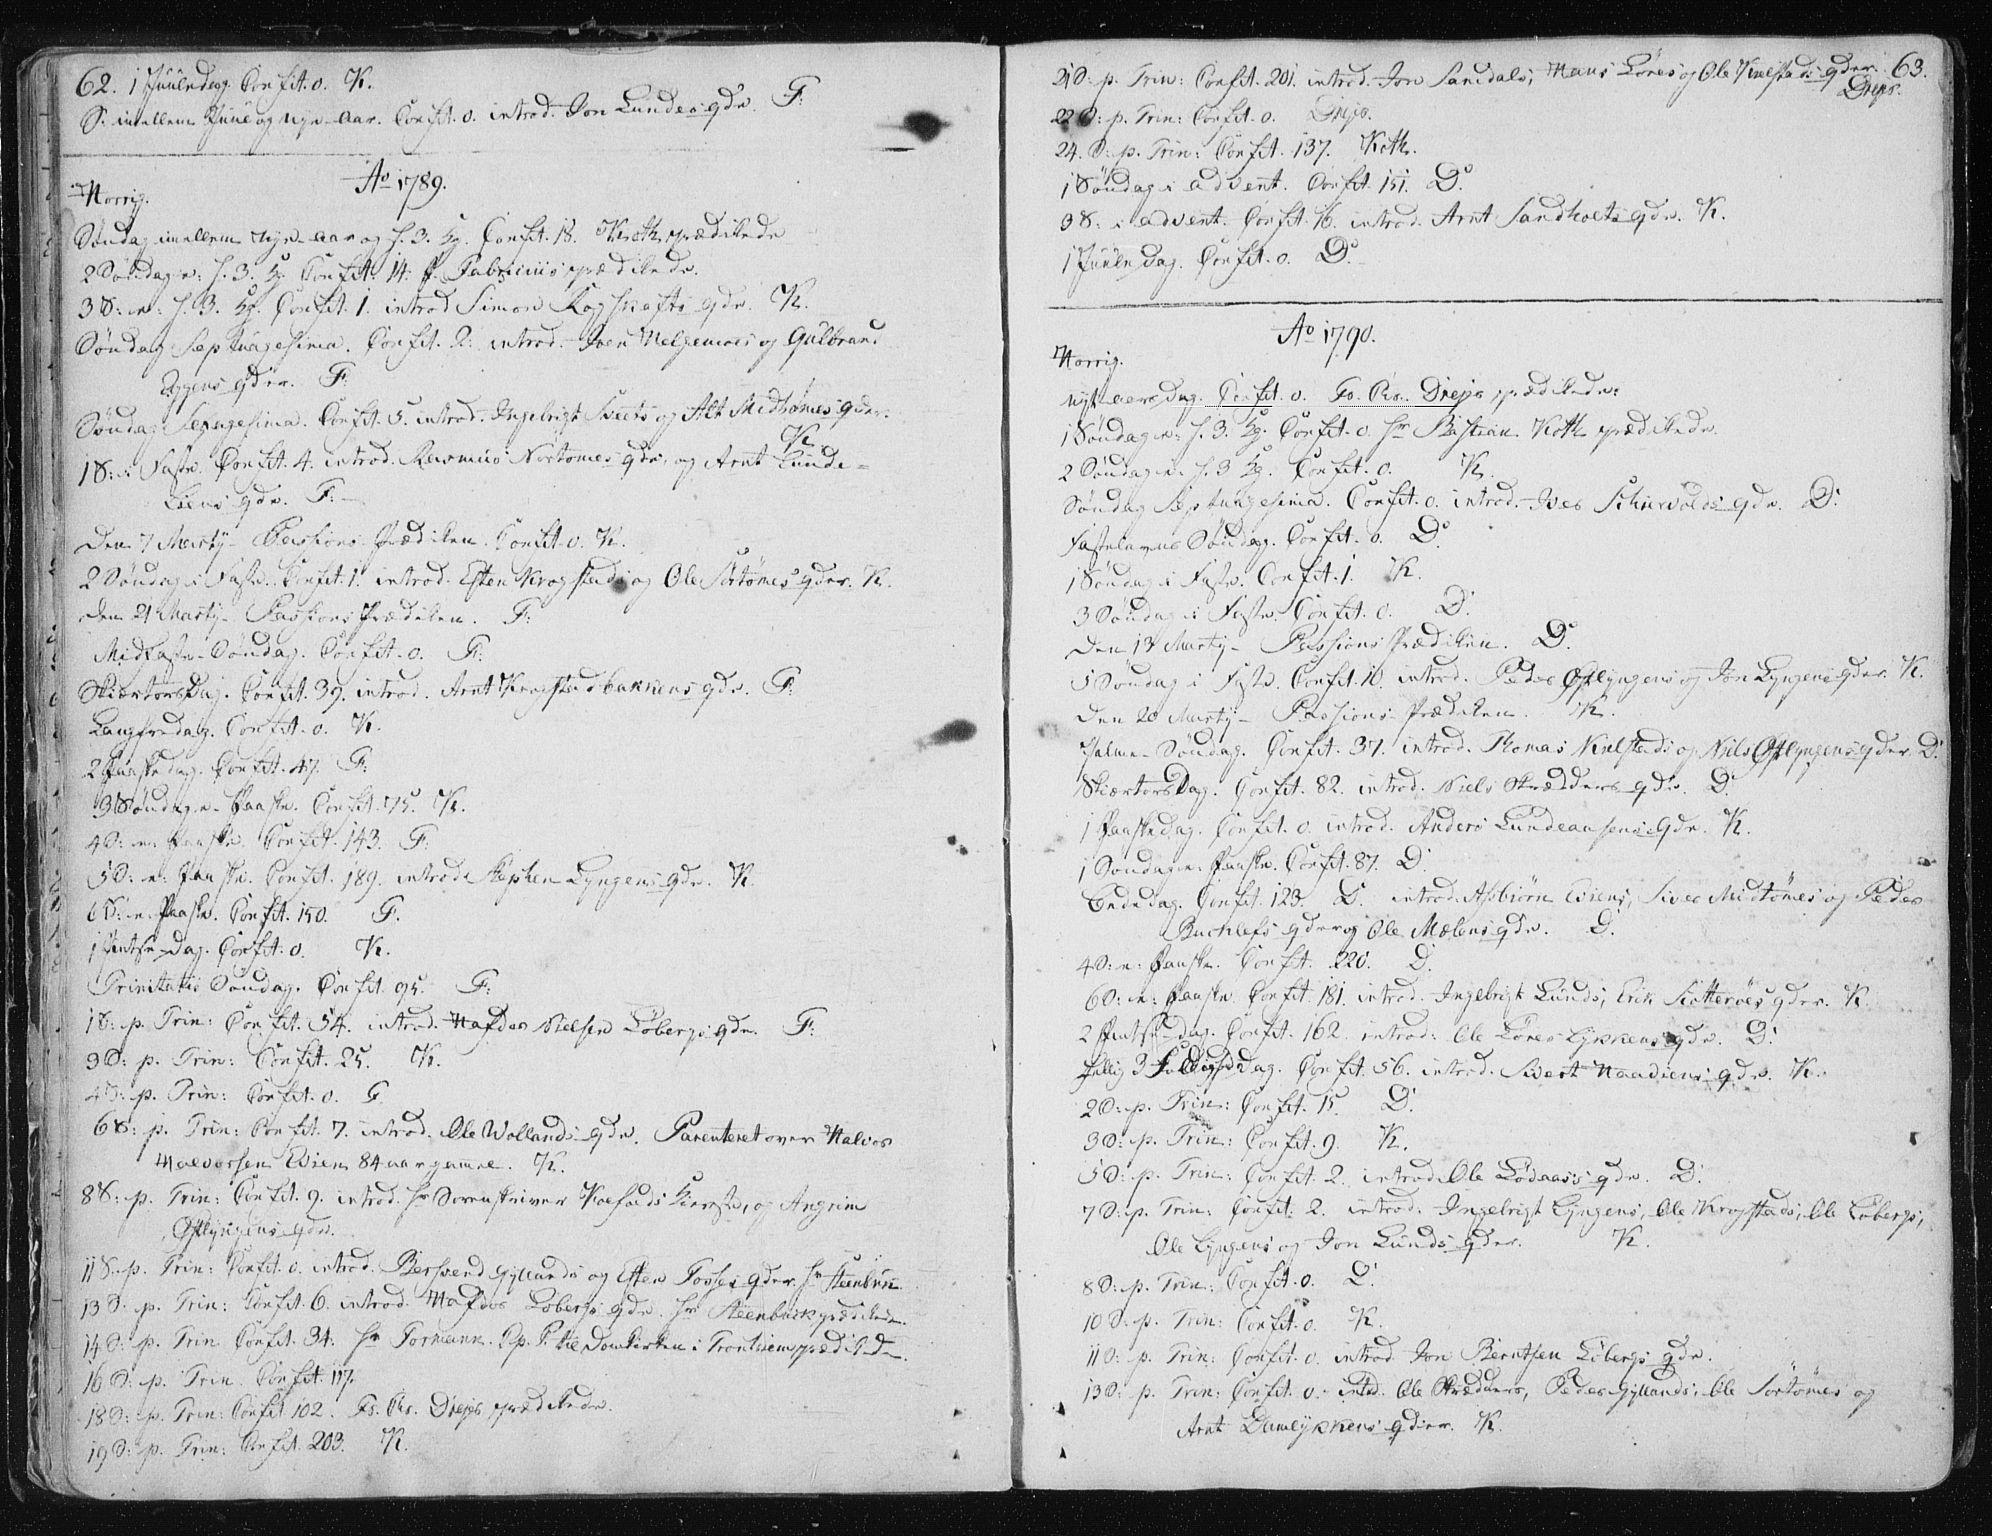 62. 1 Juuledag. Confit. 0. K.
S: imellem Juul og Nye-aar. Confit. 0. introd. Jon Lundes qde. F:
Ao 1789.
Horrig.
Søndag imellem Nye-aar og H. 3. Kg. Confit. 18. Koth prædikede
2 Søndag e: H. 3. Kg. Confit. 14. Fabricius prædikede.
3 S: e: H. 3. Kg. Confit. 1. introd. Simon Kogskafts qde. K.
Søndag Septuagesima. Confit. 2. introd. Iver Helgemoes og Gulbrand
Eggens qder. F:
Søndag Sexagesima. Confit. 5. introd. Ingebrigt Sveets og Alt Midtømes qder.
K.
1 S: i Faste. Confit. 4. introd. Rasmus Nortømes qde, og Arnt Lunde-
Liens qde. F:
den 7 Marty- Passions Prædiken. Confit. 0. K.
2 Søndag i Faste. Confit. 1. introd. Esten Krogstads og Ole Sørtømes qder. K.
den 21 Marty- Passions Prædiken. F:
Midfaste-Søndag. Confit. 0. F:
Skiærtorsdag. Confit. 39. introd. Arnt Krogstadbakkens qde. F:
Langfredag. Confit. 0. K.
2 Paaskedag. Confit. 47. F:
3 Søndag e. Paaske. Confit. 75. K.
4 S: e: Paaske. Confit. 143. F:
5 S: e: Paaske. Confit. 189. introd. Stephen Lyngens qde. K.
6 S: e. Paaske. Confit. 150. F.
1 Pintse-Dag. Confit. 0. K.
Trinitatis Søndag. Confit. 95. F:
1 S: p. Trin: Confit. 54. introd. Nielsen Løbergs qde. F:
3 S: p. Trin: Confit. 25. K.
4 S: p. Trin: Confit. 0. F
6 S: p. Trin: Confit. 7. introd. Ole Wollands qde. Parenteret over Halvor
Halvorsen Evien 84 aar gammel. K.
8 S: p. Trin: Confit. 9. introd. Hr Sorenskriver Kierste, og Angrim
Østlyngens qde.
11 S: p. Trin: Confit. 0. introd. Bersvend Gyllands og Esten Fosses qder. Hr Steenbuk.
13 S: p. Trin: Confit. 6. introd. Løbergs qde. Hr Steenbuk prædikede.
14 S: p. Trin. Confit. 34. Hr Tormann. P. til Domkirken i Tronhiem prædikede.
16 S: p. Trin. Confit. 117.
18 S: p. Trin: Confit 102. Fs. Chr. Dreyer prædikede.
19 S: p. Trin: Confit. 203. K.
21 S: p. Trin: Confit. 201. introd. Jon Sandals, Hans Løres og Ole Kielstads qder. 63.
Dreyer.
22 S: p. Trin: Confit. 0. Dreyer.
24. S: p. Trin: Confit. 137. Koth.
1 Søndag i advent. Confit. 151. D:
3 S: i advent. Confit. 16. introd. Arnt Sandholts qde. K.
1 Juule Dag. Confit. 0. D:
Ao 1790.
Horrig.
Nyt aarsdag. Confit. 0. Fs. Chr. Dreyer prædikede.
1 Søndag e: H. 3. Kg. Confit. 0. Hr Bastian Koth prædikede.
2 Søndag e. H. 3 Kg. Confit. 0. K.
Søndag Septuagesima. Confit. 0. introd. Iver Schiervolds qde. D:
Fastelavns Søndag. Confit. 0. D:
1 Søndag i Faste. Confit. 1. K.
3 Søndag i Faste. Confit. 0. D:
Den 13 Marty- Passions Prædiken. D:
5 Søndag i Faste. Confit. 10. introd. Peder Østlyngens og Jon Lyngens qder. K.
Den 20 Marty- Passions Prædiken. K.
Palme-Søndag. Confit. 37. introd. Thomas Kielstads og Niels Østlyngens qder. D:
Skiærtorsdag. Confit. 82. introd. Niels Skrædders qde. D:
1 Paaskedag. Confit. 0. introd. Anders Lundeaunens qde. K.
1 Søndag e. Paaske. Confit. 87. D:
Bededag. Confit. 123. D. introd. Asbiørn Eviens, Siver Midtømes og Peder
Buchlefs qder og Ole Mælens qde. D:
4 S: e: Paaske. Confit. 220. D.
6 S: e: Paaske. Confit. 181. introd. Ingebrigt Lunds, Erik Slotterøes qder. K.
2 Pintse-dag. Confit. 162. introd: Ole Løreslykkens qde. D:
Hellig 3 foldigheds Dag. Confit. 56. introd. Sivert Haadiens qde. K.
2 S: p. Trin: Confit. 15. D:
3 S: p. Trin: Confit. 9. K.
5 S: p. Trin: Confit. 2. introd. Ole Lødaass qde. D:
7 S: p. Trin: Confit. 2. introd. Ingebrigt Lyngens, Ole Krogstads, Ole Løbergs,
Ole Lyngens og Jon Lunds qder. K.
8 S: p. Trin: Confit. 0. D:
10 S: p. Trin: Confit. 0. K.
11 S: p. Trin: Confit. 0. introd. Jon Berntsen Løbergs qde.
13 S: p. Trin: Confit. 0. intrd. Ole Skrædders, Peder Gyllands, Ole Sørtømes og
Arnt Damlykkens qder. K.